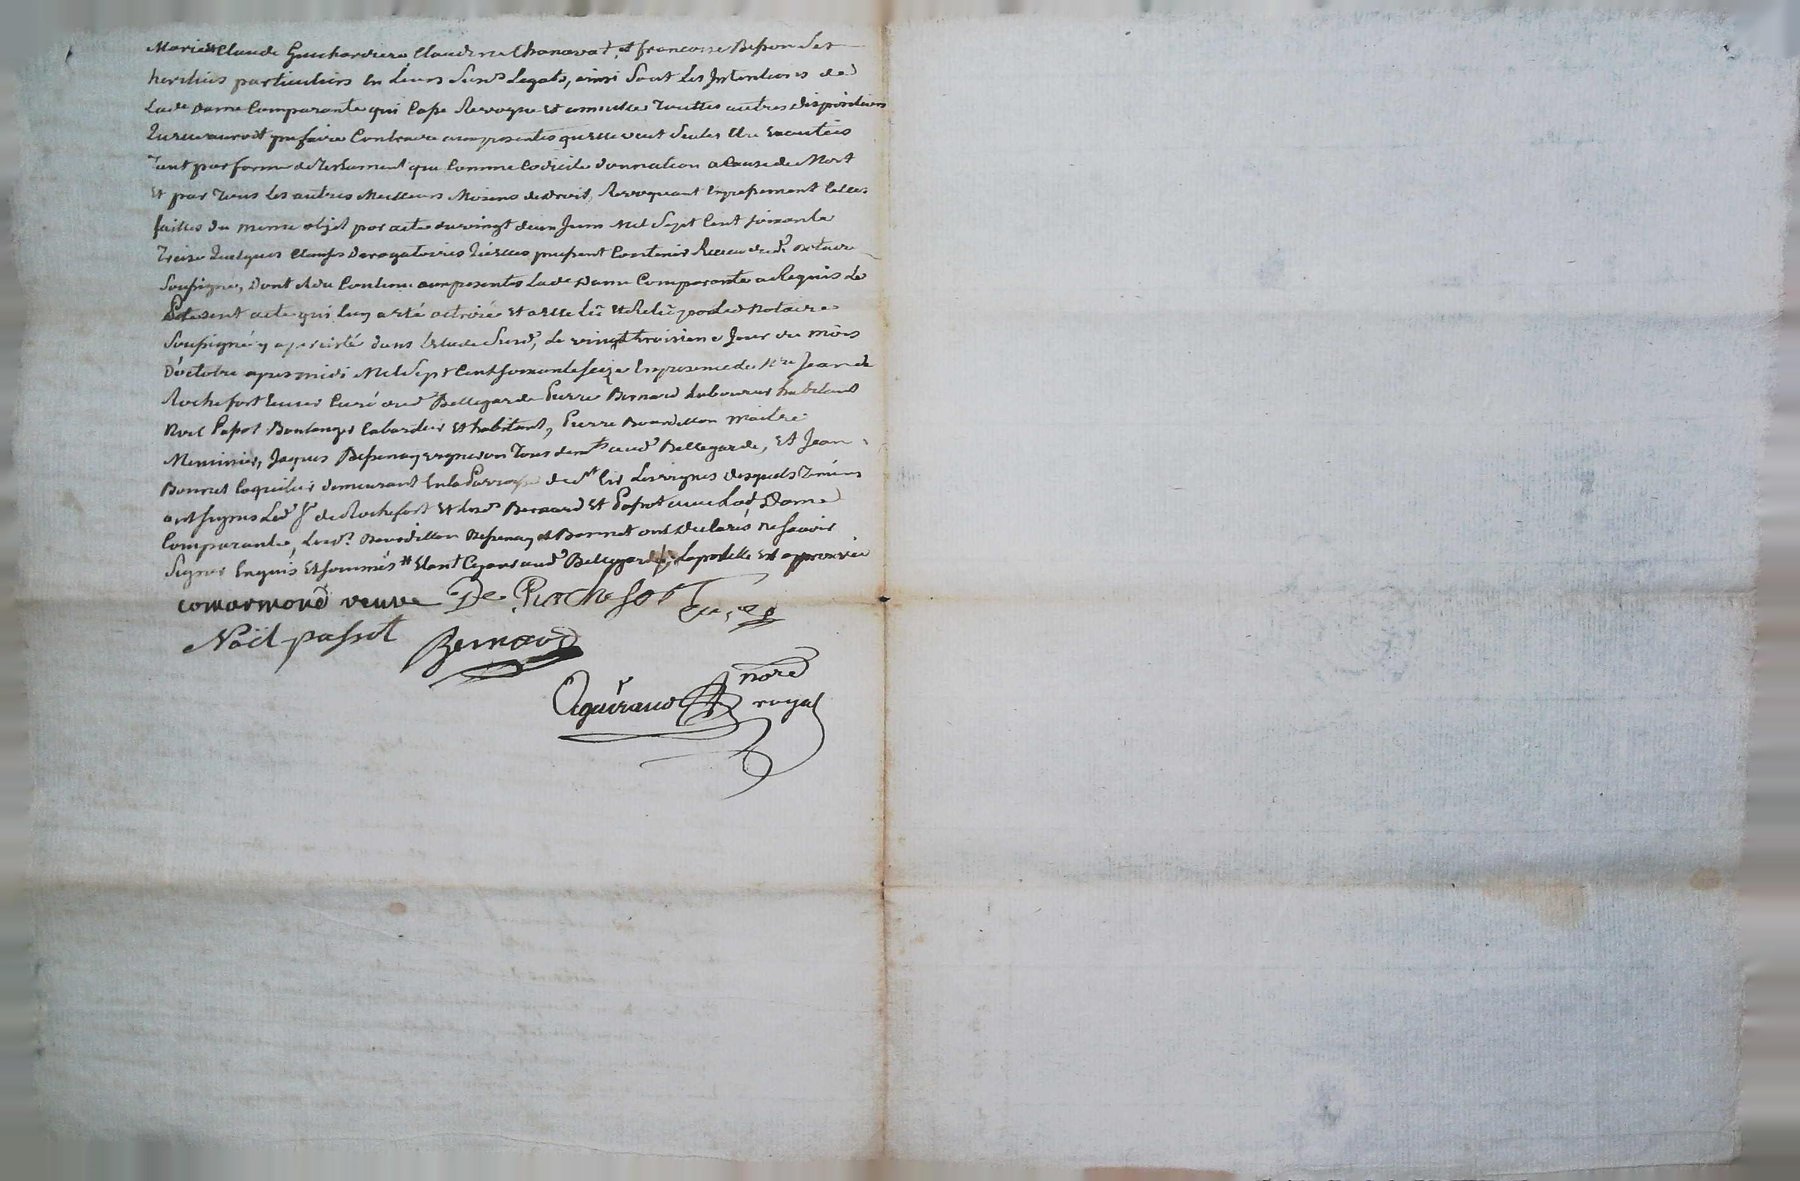 Marie et Claude Guichardiere Claudine Chanavat, et francoise Besson ses
heritiers particuliers en leurs susd. Legats, ainsi sont les Intentions de
Lade Dame Comparante qui Casse Revoque et annulle Touttes autres dispositions
qu'elle auroit pu faire Contraire aux presentes qu'elle veut seules être Executées
Tant par forme de Testament que Comme Codicile donnation a Cause de Mort
Et par Tous les autres Meilleurs Moiens de droit, Revoquant Expressement Celles
faittes du meme objet par acte du vingt deux Juin Mil Sept Cent soixante
Treize quelques Clauses Derogatoires qu'elles pussent Contenir Receu du d. Notaire
Soussigné, Dont et du Contenu aux presentes Lade Dame Comparante a Requis Le
Present acte qui luy a été octroié et a elle lû et Relû par Led Notaire
Soussigné y a persisté dans L'etude Susd., Le vingt troisieme Jour du mois
D'octobre apres midi Mil Sept Cent soixante seize En presence de Mre Jean de
Rochefort Curé dud. Bellegarde Pierre Bernard Laboureur habitant
Noel Passot Boulanger Cabardier et habitant, Pierre Bourdillon maitre
Menuisier, Jaques Bessenay vigneron Tous demts aud. Bellegarde, et Jean
Bonnet demeurant En la Parroisse de st Cir Les vignes desquels Témoins
ont signés Led. sr de Rochefort et Lesd. Bernard et Passot avec Lad. Dame
Comparante, Lesd. Bourdillon Bessenay et Bonnet ont declarés ne scavoir
Signer Enquis et sommés # Etant aud. Bellegarde, Lapostille est approuvée
comarmond veuve De Rochefort Curé
Noël passot Bernard
Aguiraud nore
royal